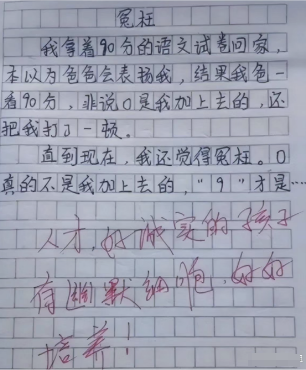 冤枉
我拿着90分的语文试卷回家,
本以为爸爸会表扬我,结果我爸一
看90分,非说0是我加上去的,还
把我打了一顿。
直到现在,我还觉得冤枉。0
真的不是我加上去的,“9”才是…
人才,好诚实的孩子
有幽默细胞,好好
培养!